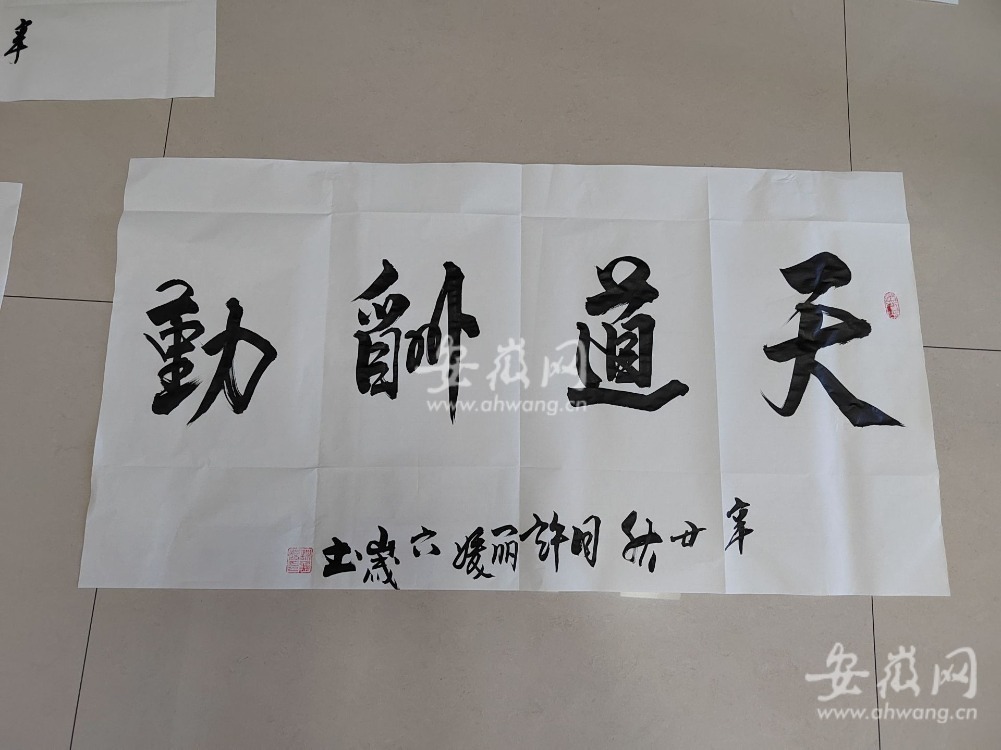 辛
天道酬勤
辛丑秋月許丽媛六歲书
安徽网
www.ahwang.cn
安徽网
www.ahwang.cn